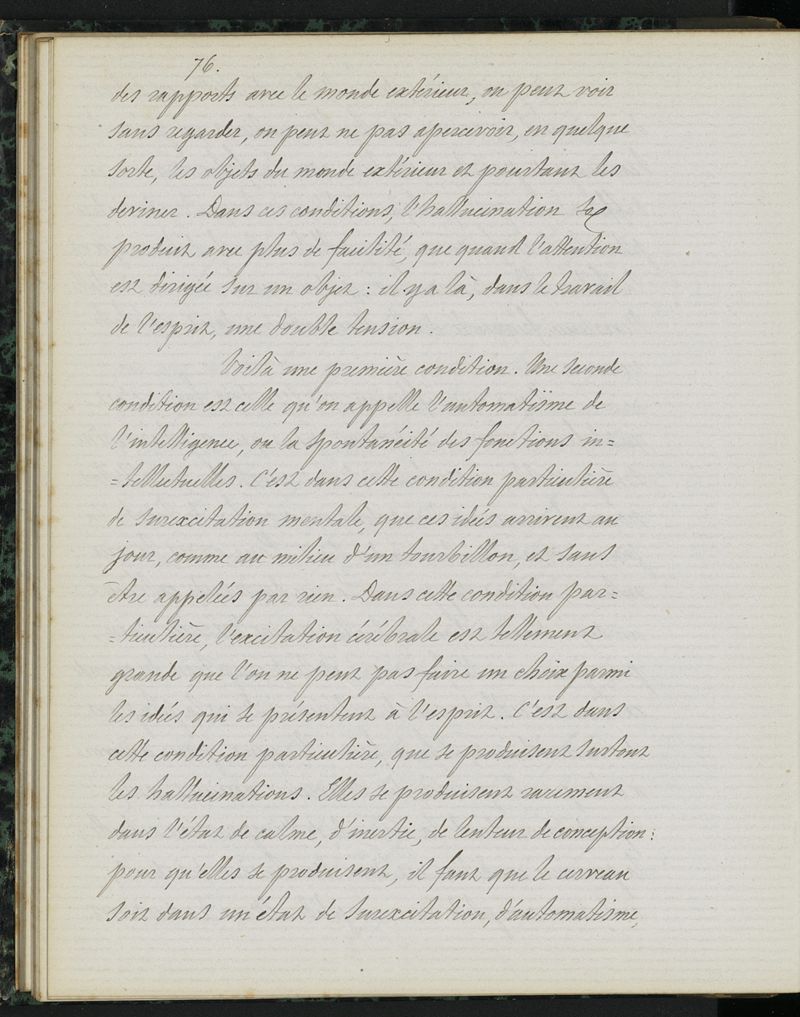 76.
des rapports avec le monde extérieur, on peut voir
sans regarder, on peut ne pas apercevoir, en quelque
sorte, les objets du monde extérieur et pourtant les
deviner. Dans ces conditions, l'hallucination se
produit avec plus de facilité, que quand l'attention
est dirigée sur un objet : il y a là, dans le travail
de l'esprit, une double tension.
Voilà une première condition. Une seconde
condition est celle qu'on appelle l'automatisme de
l'intelligence, ou la spontanéité des fonctions in=
=tellectuelles. C'est dans cette condition particulière
de surexcitation mentale, que ces idées arrivent au
jour, comme au milieu d'un tourbillon, et sans
être appelées par rien. Dans cette condition par=
=ticulière, l'excitation cérébrale est tellement
grande que l'on ne peut pas faire un choix parmi
les idées qui se présentent à l'esprit. C'est dans
cette condition particulière, que se produisent surtout
les hallucinations. Elles se produisent rarement
dans l'état de calme, d'inertie, de lenteur de conception :
pour qu'elles se produisent, il faut que le cerveau
soit dans un état de surexcitation, d'automatisme,